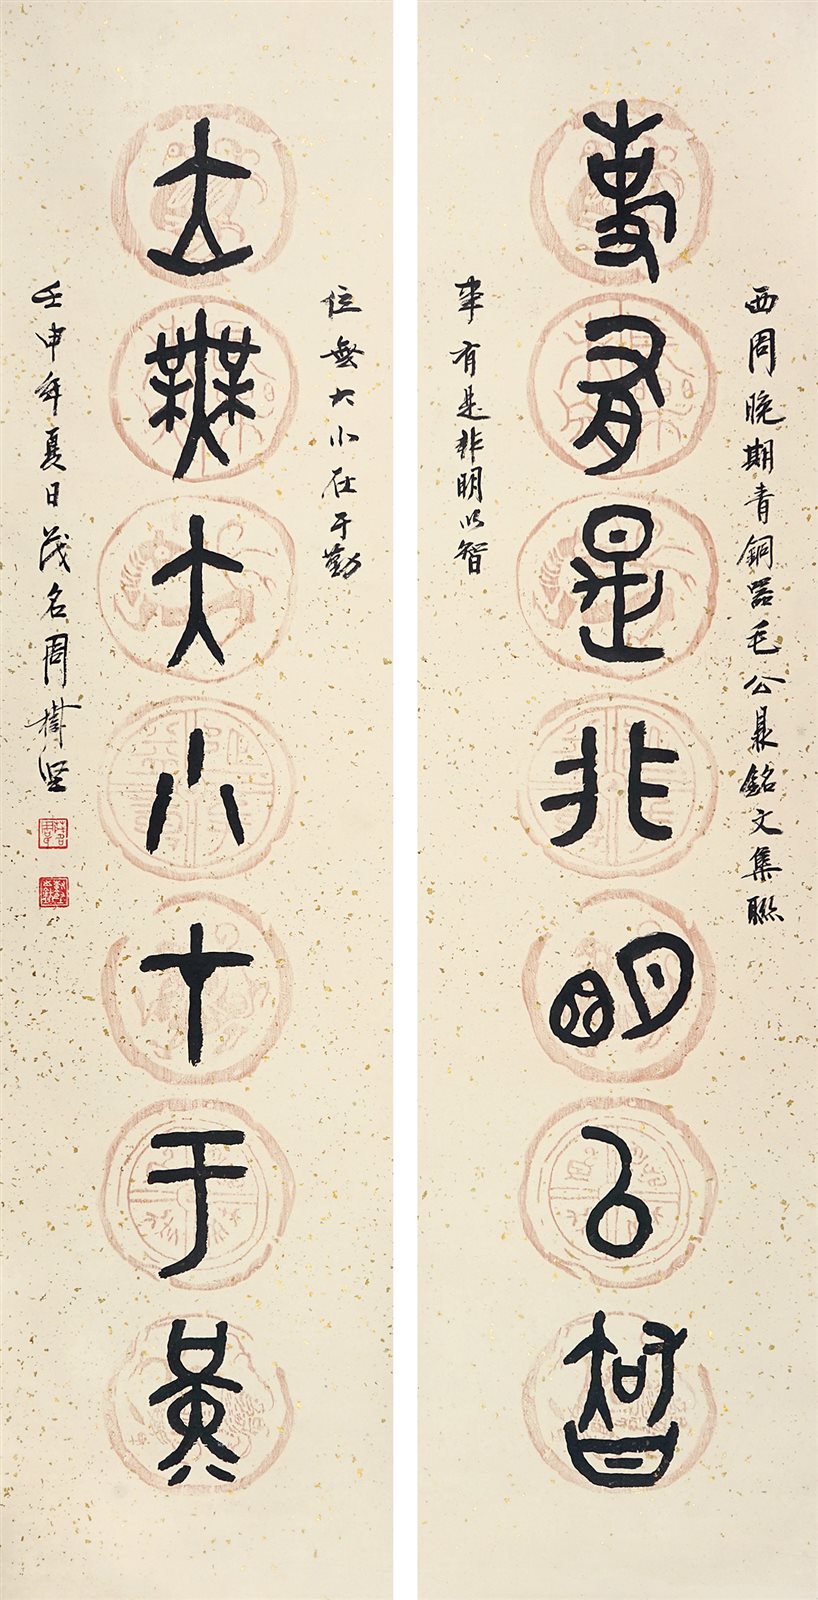 西周晚期青銅器毛公鼎銘文集聯
事有是非明以智
事有是非明以智
位無大小在于勤
立無大小才于堇
壬申年夏日茂名周樹堅